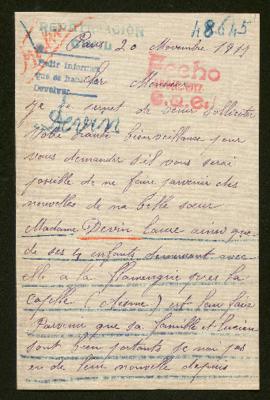 48645
Paris 20 Novembre 1917
Pedir informes
Devolver
Hecho
Cher Monsieur
Je me permet de venir solliciter
Devin
votre haute bienveillance pour
vous demander s'il vous serai
possible de me faire parvenir des
nouvelles de ma belle sœur
Madame Devin Laure ainsi que
de ses 4 enfants demeurant avec
elle a la flamengrie près la
Capelle (Aisne) et leur faire
Parvenir que sa famille et Lucien
sont bien portants je n'ai pas
eu de leur nouvelle depuis